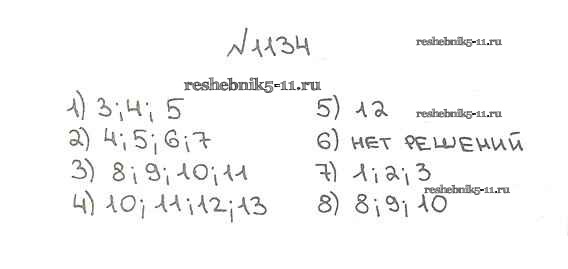 №1134
reshebnik5-11.ru
reshebnik5-11.ru
1) 3; 4; 5
2) 4; 5; 6; 7
3) 8; 9; 10; 11
4) 10; 11; 12; 13
5) 12
reshebnik5-11.ru
6) НЕТ РЕШЕНИЙ
7) 1; 2; 3
reshebnik5-11.ru
8) 8; 9; 10